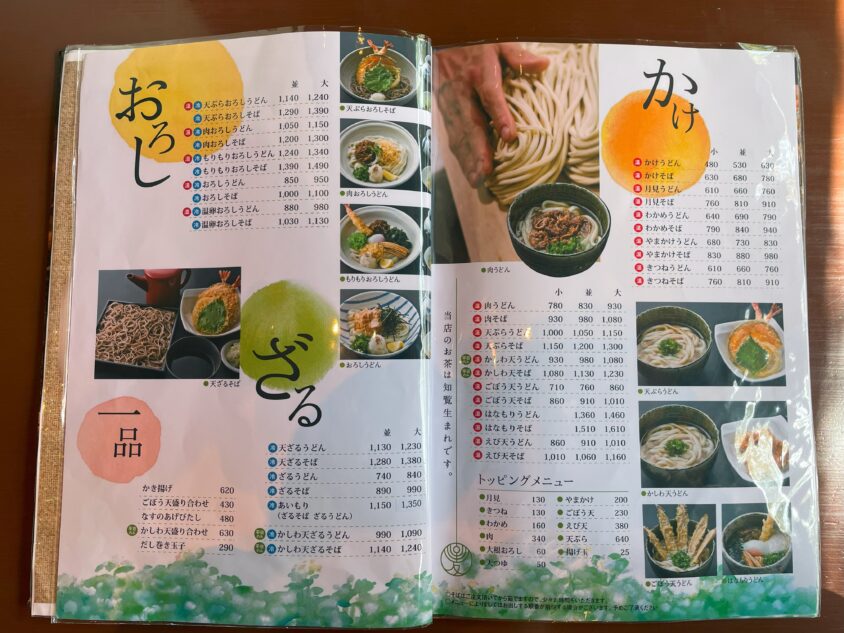 おろし
並 大
温 冷 天ぷらおろしうどん 1,140 1,240
冷 天ぷらおろしそば 1,290 1,390
温 冷 肉おろしうどん 1,050 1,150
冷 肉おろしそば 1,200 1,300
温 冷 もりもりおろしうどん 1,240 1,340
冷 もりもりおろしそば 1,390 1,490
温 冷 おろしうどん 850 950
冷 おろしそば 1,000 1,100
温 冷 温卵おろしうどん 880 980
冷 温卵おろしそば 1,030 1,130
天ぷらおろしそば
肉おろしうどん
もりもりおろしうどん
おろしうどん
天ざるそば
ざる
並 大
冷 天ざるうどん 1,130 1,230
冷 天ざるそば 1,280 1,380
冷 ざるうどん 740 840
冷 ざるそば 890 990
冷 あいもり 1,150 1,350
(ざるそば ざるうどん)
冷 かしわ天ざるうどん 990 1,090
冷 かしわ天ざるそば 1,140 1,240
一品
かき揚げ 620
ごぼう天盛り合わせ 430
なすのあげびたし 480
かしわ天盛り合わせ 630
だし巻き玉子 290
当店のお茶は知覧生まれです。
かけ
小 並 大
温 かけうどん 480 530 630
温 かけそば 630 680 780
温 月見うどん 610 660 760
温 月見そば 760 810 910
温 わかめうどん 640 690 790
温 わかめそば 790 840 940
温 やまかけうどん 680 730 830
温 やまかけそば 830 880 980
温 きつねうどん 610 660 760
温 きつねそば 760 810 910
肉うどん
小 並 大
温 肉うどん 780 830 930
温 肉そば 930 980 1,080
温 天ぷらうどん 1,000 1,050 1,150
温 天ぷらそば 1,150 1,200 1,300
温 かしわ天うどん 930 980 1,080
温 かしわ天そば 1,080 1,130 1,230
温 ごぼう天うどん 710 760 860
温 ごぼう天そば 860 910 1,010
温 はなもりうどん 1,360 1,460
温 はなもりそば 1,510 1,610
温 えび天うどん 860 910 1,010
温 えび天そば 1,010 1,060 1,160
トッピングメニュー
月見 130
きつね 130
わかめ 160
肉 340
大根おろし 60
天つゆ 50
やまかけ 200
ごぼう天 230
えび天 380
天ぷら 640
揚げ玉 25
天ぷらうどん
かしわ天うどん
ごぼう天うどん
はなもりうどん